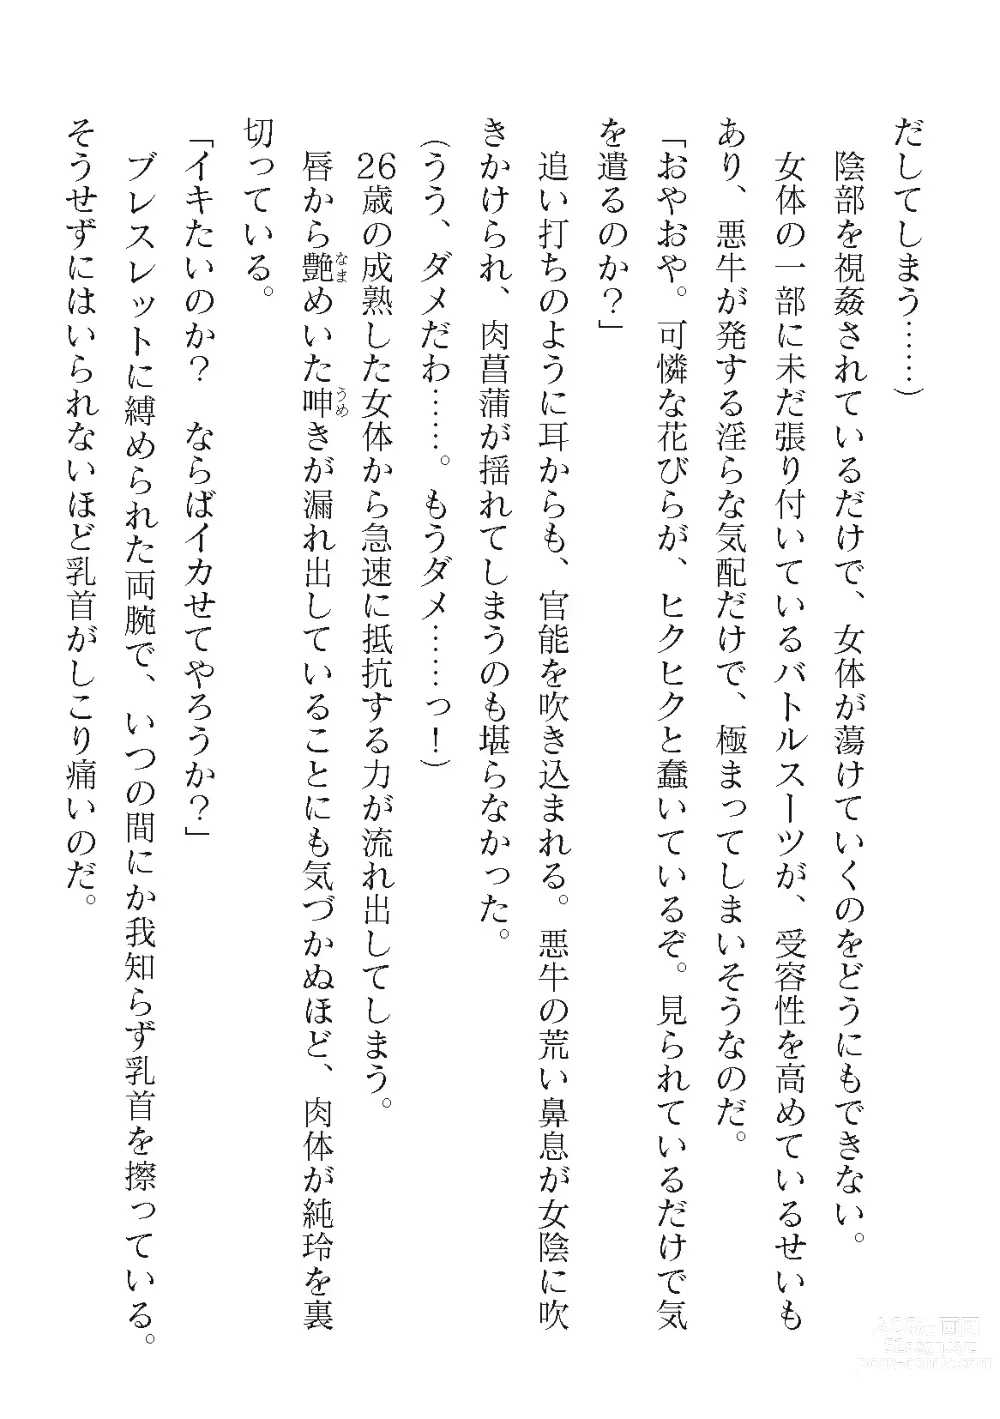 だしてしまう……）
陰部を視姦されているだけで、女体が蕩けていくのをどうにもできない。
女体の一部に未だ張り付いているバトルスーツが、受容性を高めているせいも
あり、悪牛が発する淫らな気配だけで、極まってしまいそうなのだ。
「おやおや。可憐な花びらが、ヒクヒクと蠢いているぞ。見られているだけで気
を遣るのか？」
追い打ちのように耳からも、官能を吹き込まれる。悪牛の荒い鼻息が女陰に吹
きかけられ、肉菖蒲が揺れてしまうのも堪らなかった。
（うう、ダメだわ……。もうダメ……っ！）
26歳の成熟した女体から急速に抵抗する力が流れ出してしまう。
唇から艶めいた呻きが漏れ出していることにも気づかぬほど、肉体が純玲を裏
切っている。
「イキたいのか？　ならばイカせてやろうか？」
ブレスレットに縛められた両腕で、いつの間にか我知らず乳首を擦っている。
そうせずにはいられないほど乳首がしこり痛いのだ。